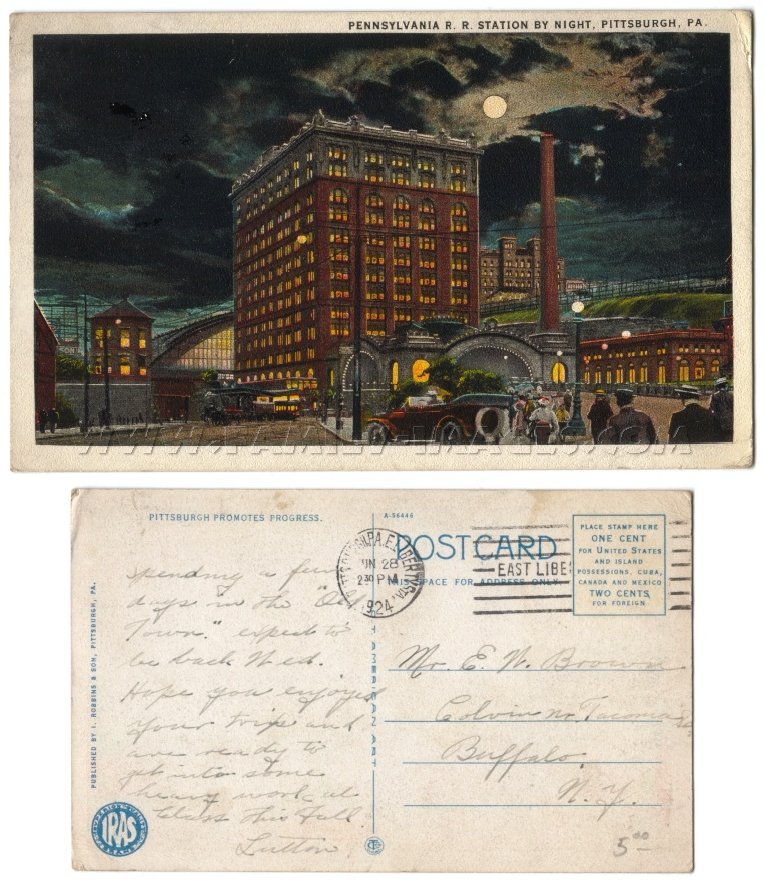 PENNSYLVANIA R. R. STATION BY NIGHT, PITTSBURGH, PA.
WWW.FAMILY-IMAGES.COM
PITTSBURGH PROMOTES PROGRESS.
A-56446
POSTCARD
THIS SPACE FOR ADDRESS ONLY
JUN 28
2 30 PM
1924
EAST LIBE
PLACE STAMP HERE
ONE CENT
FOR UNITED STATES
AND ISLAND
POSSESSIONS, CUBA,
CANADA AND MEXICO
TWO CENTS
FOR FOREIGN
PUBLISHED BY I. ROBBINS & SON, PITTSBURGH, PA.
Spending a few
days in the "Old
Town" expect to
be back Wed.
Hope you enjoyed
your trip and
are ready to
get into some
heavy work at
class this fall.
Mr. E. W. Brown
Colvin nr. Tacoma
Buffalo.
N. Y.
IRAS
5.00